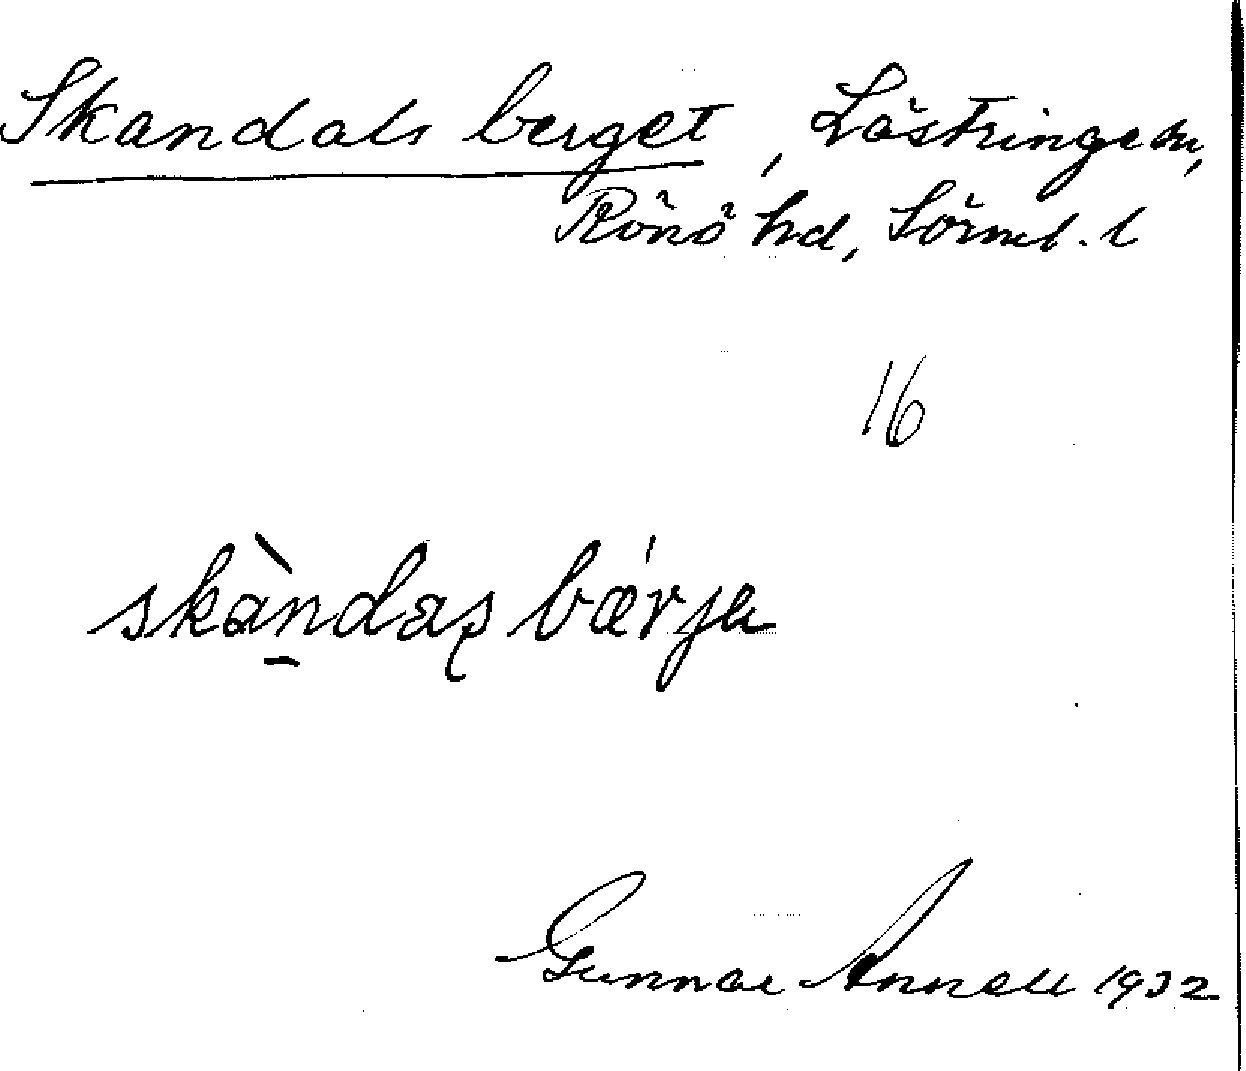 Skandals berget, Lästringe sn,
Rönö hd, Sörml. l
16
skàndas bǽrja
Gunnar Annell 1932